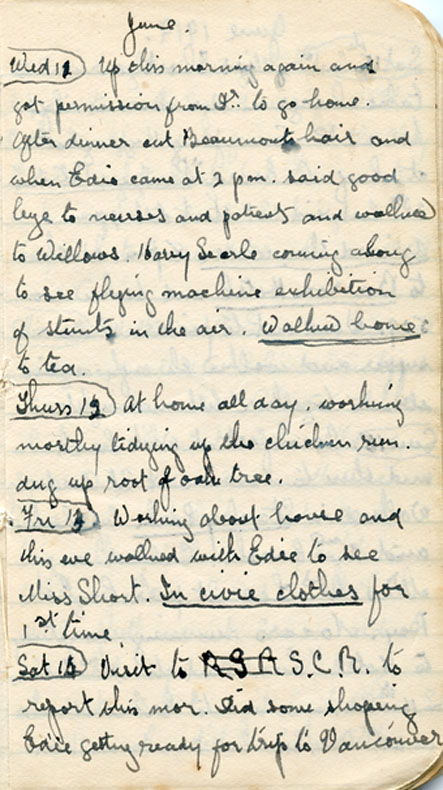 June.
Wed 11 Up this morning again and
got permission from Dr to go home.
After dinner cut Beaumonts hair and
when Edie came at 2 pm. said good
bye to nurses and patients and walked
to Willows. Harry Searle coming along
to see flying machine exhibition
of stunts in the air. Walked home
to tea.
Thurs 12 At home all day. working
mostly tidying up the chicken run.
dug up root of oak tree.
Fri 13 Working about house and
this eve walked with Edie to see
Miss Short. In civic clothes for
1st time.
Sat 14 Visit to R S A S.C.R. to
report this mor. Did some shoping
Edie getting ready for trip to Vancouver